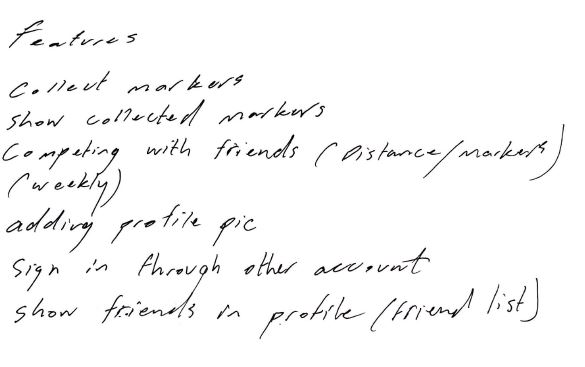 Features
Collect markers
show collected markers
Competing with friends (Distance/markers)
(weekly)
adding profile pic
Sign in through other account
show friends in profile (friend list)